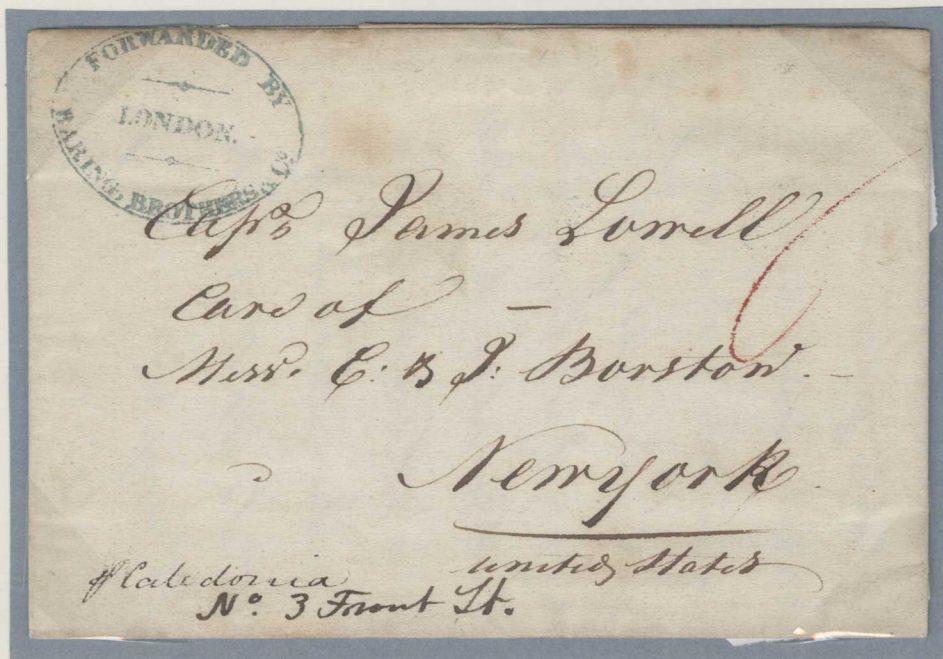 FORWARDED BY
LONDON.
BARING, BROTHERS & Co.
Capt. James Lowell
Care of —
Messrs. E. B J: Barstow. —
Newyork.
united States
p Caledonia
No. 3 Front St.
6